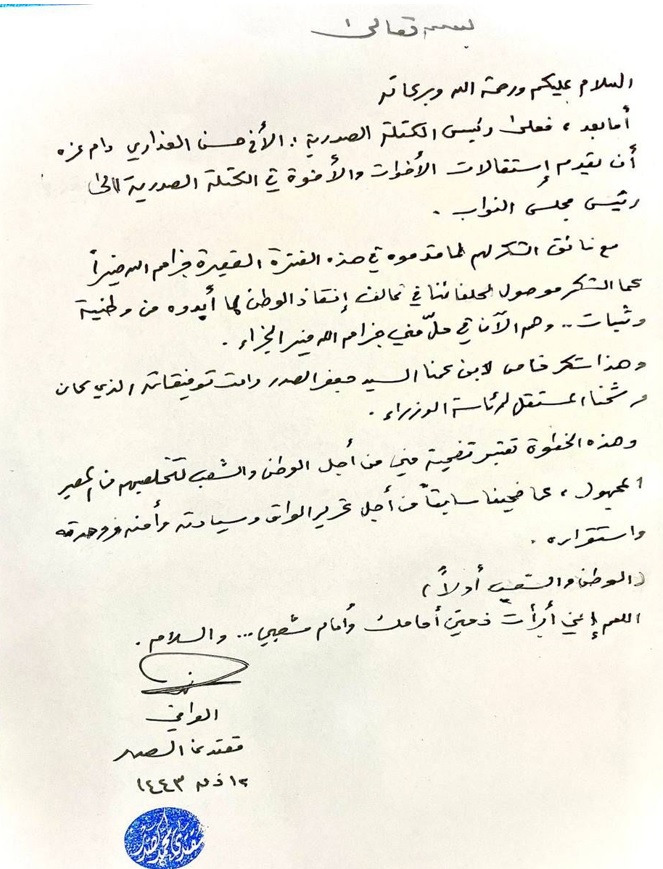 بسمه تعالى
السلام عليكم ورحمة الله وبركاته
أما بعد ، فعلى رئيس الكتلة الصدرية : الأخ حسن العذاري دام عزه
أن يقدم إستقالات الأخوات والأخوة في الكتلة الصدرية الى
رئيس مجلس النواب .
مع فائق الشكر لهم لما قدموه في هذه الفترة القصيرة جزاهم الله خيراً
كما الشكر موصول لحلفائنا في تحالف إنقاذ الوطن لما أبدوه من وطنية
وثبات .. وهم الآن في حلّ مني جزاهم الله خير الجزاء .
وهذا شكر خاص لابن عمنا السيد جعفر الصدر دامت توفيقاته الذي كان
مرشحنا المستقل لرئاسة الوزراء .
وهذه الخطوة تعتبر تضحية مني من أجل الوطن والشعب لتخليصهم من المصير
المجهول ، كما ضحينا سابقاً من أجل تحرير العراق وسيادته وأمنه ووحدته
واستقراره .
(الوطن والشعب أولاً)
اللهم إني أبرأت ذمتي أمامك وأمام شعبي ... والسلام .
العراقي
مقتدى الصدر
١٢ ذ ق ١٤٤٣
مقتدى محمد الصدر